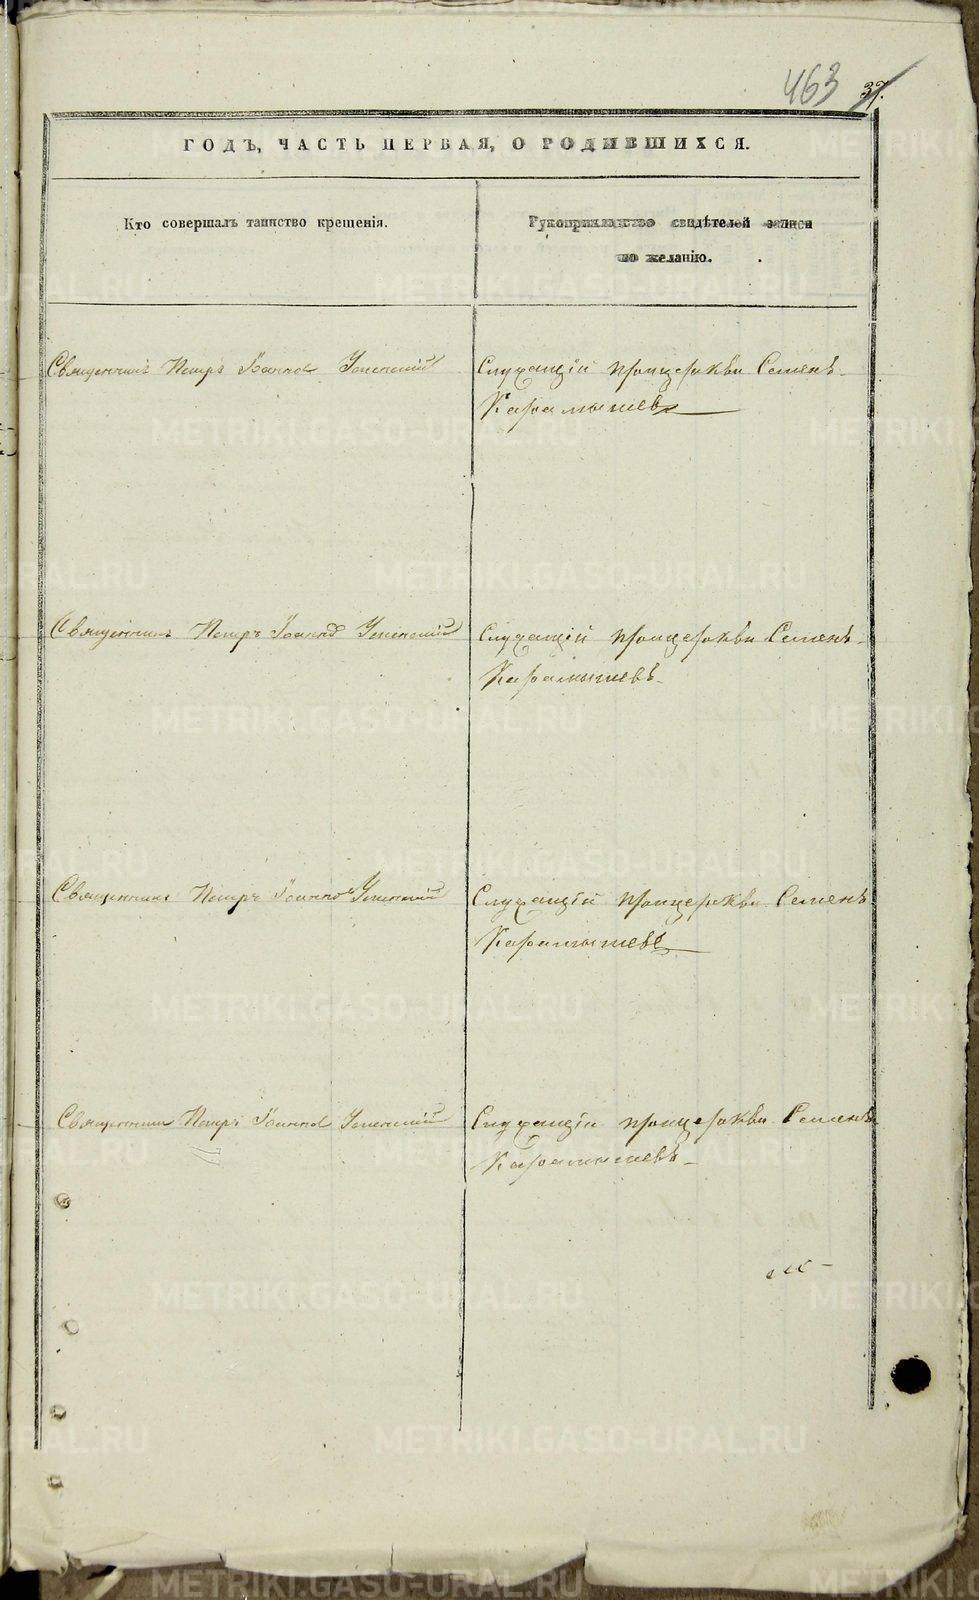 463 37.
ГОДЪ, ЧАСТЬ ПЕРВАЯ, О РОДИВШИХСЯ.
Кто совершалъ таинство крещенія.
Рукоприкладство свидѣтелей записи
по желанію.
Священникъ Петръ Іоаннов Успенскій
Служащій при церкви Семенъ
Карамышевъ
Священникъ Петръ Іоаннов Успенскій
Служащій при церкви Семенъ
Карамышевъ
Священникъ Петръ Іоаннов Успенскій
Служащій при церкви Семенъ
Карамышевъ
Священникъ Петръ Іоаннов Успенскій
Служащій при церкви Семенъ
Карамышевъ
METRIKI.GASO-URAL.RU